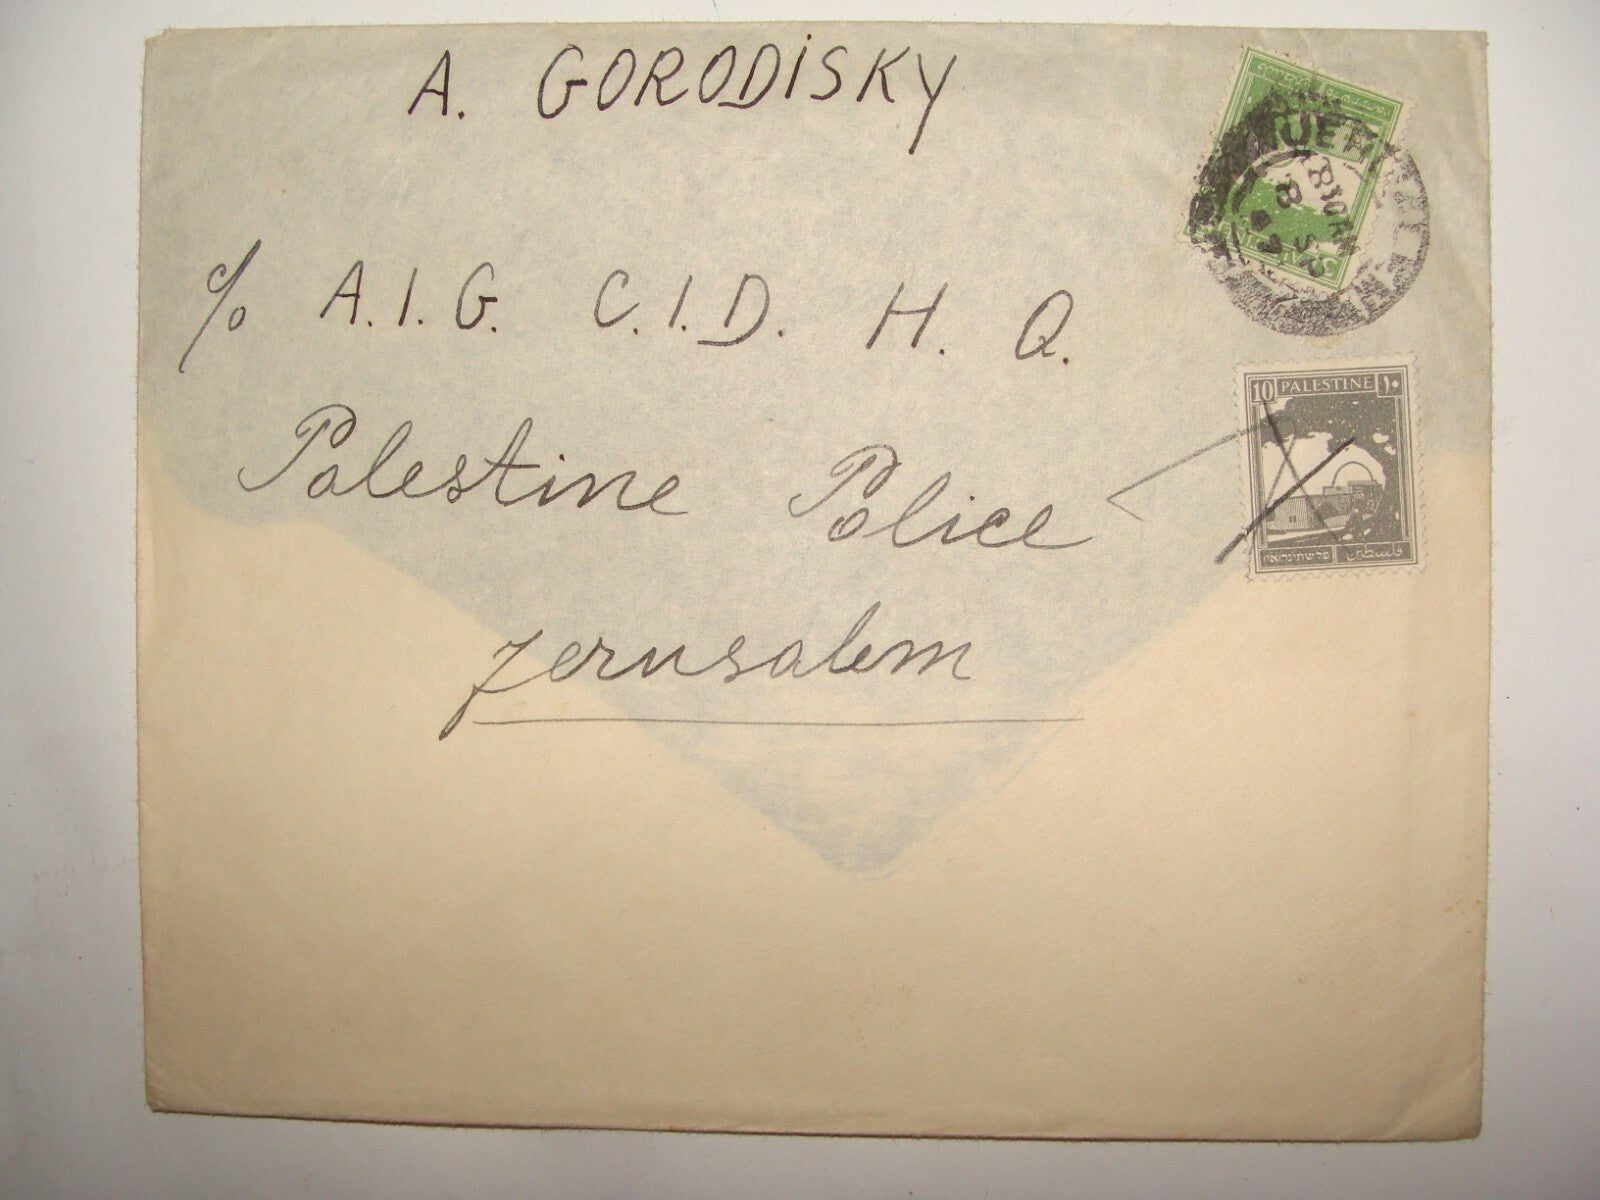 A. GORODISKY
c/o A.I.G. C.I.D. H. Q.
Palestine Police
Jerusalem
10 PALESTINE ١٠
פלשתינה א״י فلسطين